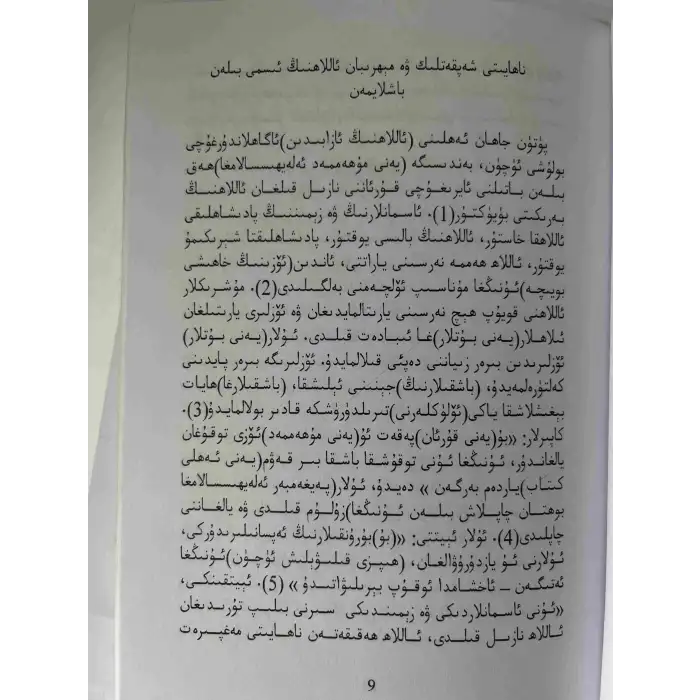 ناھايىتى شەپقەتلىك ۋە مېھرىبان ئاللاھنىڭ ئىسمى بىلەن
باشلايمەن
پۈتۈن جاھان ئەھلىنى (ئاللاھنىڭ ئازابىدىن)ئاگاھلاندۇرغۇچى
بولۇشى ئۈچۈن، بەندىسىگە (يەنى مۇھەممەد ئەلەيھىسسالامغا)ھەق
بىلەن باتىلنى ئايرىغۇچى قۇرئاننى نازىل قىلغان ئاللاھنىڭ
بەرىكىتى بۈيۈكتۇر(1). ئاسمانلارنىڭ ۋە زېمىننىڭ پادىشاھلىقى
ئاللاھقا خاستۇر، ئاللاھنىڭ بالىسى يوقتۇر، پادىشاھلىقتا شېرىكىمۇ
يوقتۇر، ئاللاھ ھەممە نەرسىنى ياراتتى، ئاندىن(ئۆزىنىڭ خاھىشى
بويىچە)ئۇنىڭغا مۇناسىپ ئۆلچەمنى بەلگىلىدى(2). مۇشرىكلار
ئاللاھنى قويۇپ ھېچ نەرسىنى يارىتالمايدىغان ۋە ئۆزلىرى يارىتىلغان
ئىلاھلار(يەنى بۇتلار)غا ئىبادەت قىلدى. ئۇلار(يەنى بۇتلار)
ئۆزلىرىدىن بىرەر زىياننى دەپئى قىلالمايدۇ. ئۆزلىرىگە بىرەر پايدىنى
كەلتۈرەلمەيدۇ، (باشقىلارنىڭ)جېنىنى ئېلىشقا، (باشقىلارغا)ھايات
بېغىشلاشقا ياكى(ئۆلۈكلەرنى)تىرىلدۈرۈشكە قادىر بولالمايدۇ(3).
كاپىرلار: «بۇ(يەنى قۇرئان)پەقەت ئۇ(يەنى مۇھەممەد)ئۆزى توقۇغان
يالغاندۇر، ئۇنىڭغا ئۇنى توقۇشقا باشقا بىر قەۋم(يەنى ئەھلى
كىتاب)ياردەم بەرگەن» دەيدۇ، ئۇلار(پەيغەمبەر ئەلەيھىسسالامغا
بوھتان چاپلاش بىلەن ئۇنىڭغا)زۇلۇم قىلدى ۋە يالغاننى
چاپلىدى(4). ئۇلار ئېيتتى: «(بۇ)بۇرۇنقىلارنىڭ ئەپسانىلىرىدۇركى،
ئۇلارنى ئۇ يازدۇرۇۋالغان، (ھىپزى قىلىۋېلىش ئۈچۈن)ئۇنىڭغا
ئەتىگەن – ئاخشامدا ئوقۇپ بېرىلىۋاتىدۇ» (5). ئېيتقىنكى،
«ئۇنى ئاسمانلاردىكى ۋە زېمىندىكى سىرنى بىلىپ تۇرىدىغان
ئاللاھ نازىل قىلدى، ئاللاھ ھەقىقەتەن ناھايىتى مەغپىرەت
9